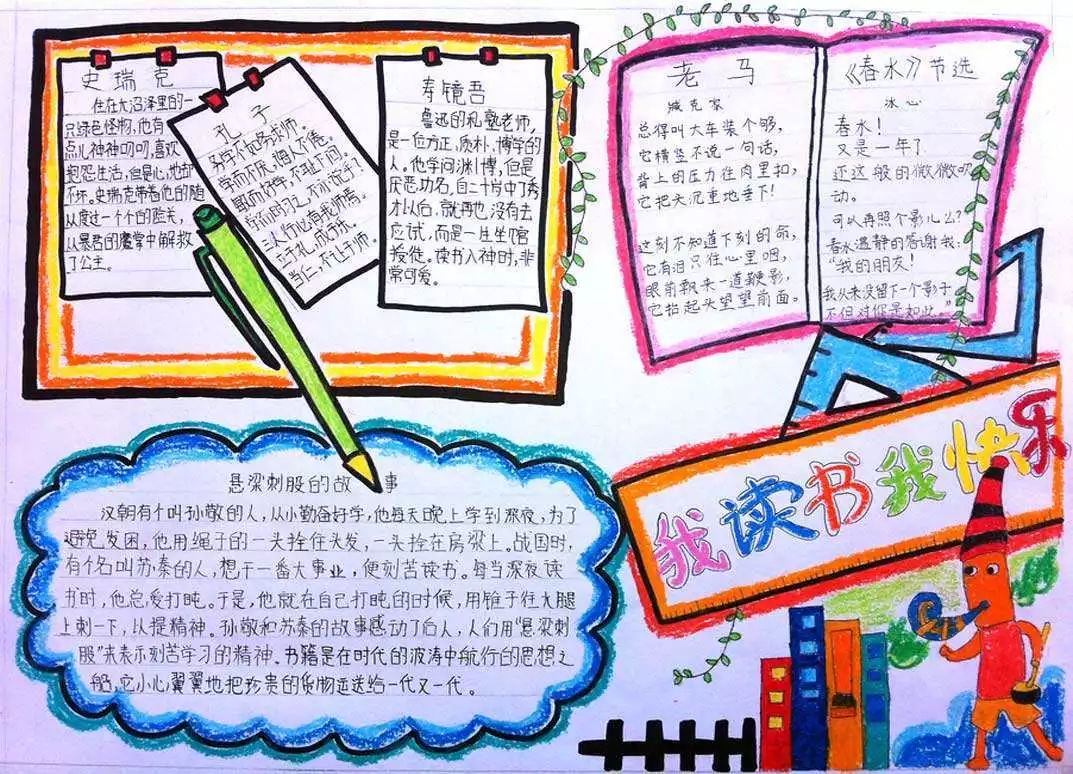 史瑞克
住在大沼泽里的一
只绿色怪物,他有
点儿神神叨叨,喜欢
抱怨生活,但是心,地却
不坏。史瑞克带着他的随
从度过一个个的匪关,
从暴君的魔掌中解救
了公主。
孔子
学而不厌,诲人不倦。
三人行必有我师焉。
立于礼,成于乐。
当仁,不让于师。
寿镜吾
鲁迅的私塾老师,
是一位方正,质朴,博学的
人。他学问渊博,但是
厌恶功名,自二十岁中了秀
才以后,就再也没有去
应试,而是一生坐馆
授徒。读书入神时,非
常可爱。
老马
臧克家
总得叫大车装个够,
它横竖不说一句话,
背上的压力往肉里扣,
它把头沉重地垂下!
这刻不知道下刻的命,
它有泪只往心里咽,
眼前飘来一道鞭影,
它抬起头望望前面。
《春水》节选
冰心
春水!
又是一年了
还这般的微微吹
动。
可以再照个影儿么?
春水温静的感谢我:
“我的朋友!
我从来没留下一个影子
不但对你是如此。”
我读书我快乐
悬梁刺股的故事
汉朝有个叫孙敬的人,从小勤奋好学,他每天晚上学到深夜,为了
避免发困,他用绳子的一头拴住头发,一头拴在房梁上。战国时,
有个名叫苏秦的人,想干一番大事业,便刻苦读书。每当深夜读
书时,他总爱打盹。于是,他就在自己打盹的时候,用锥子往大腿
上刺一下,以提精神。孙敬和苏秦的故事感动了后人,人们用“悬梁刺
股”来表示刻苦学习的精神。书籍是在时代的波涛中航行的思想之
船,它小心翼翼地把珍贵的货物运送给一代又一代。